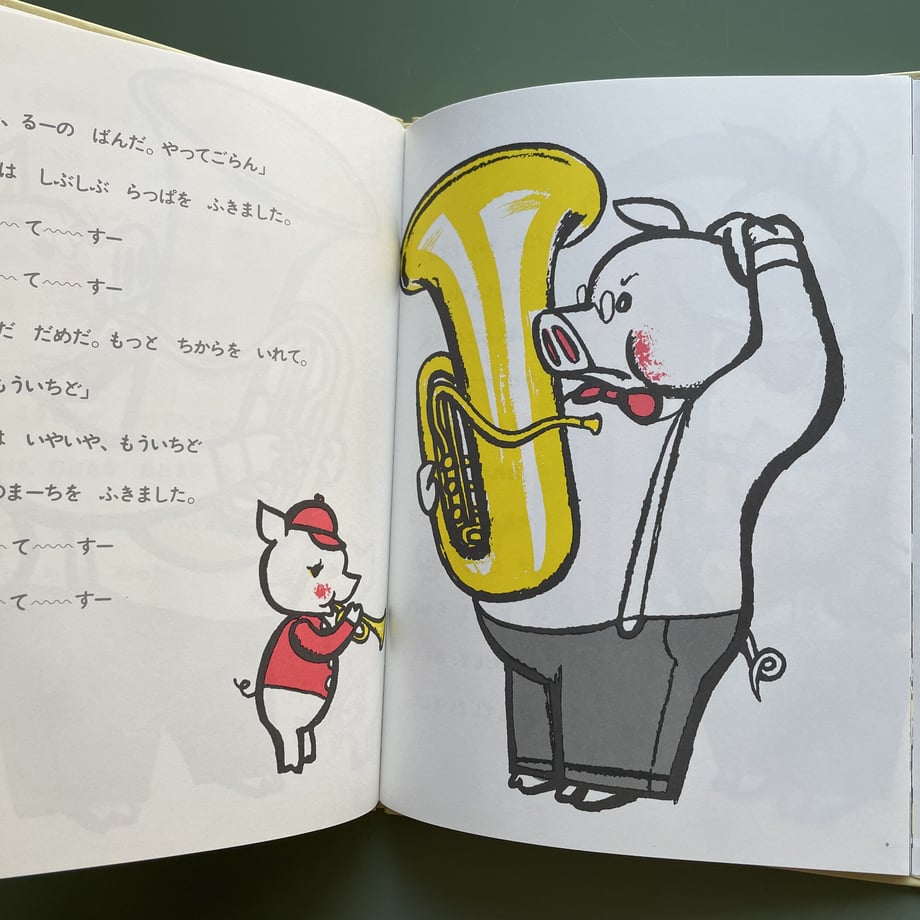 、るーの　ばんだ。やってごらん」
は　しぶしぶ　らっぱを　ふきました。
〜〜て〜〜〜すー
〜〜て〜〜〜すー
だ　だめだ。もっと　ちからを　いれて。
もういちど」
は　いやいや、もういちど
のまーちを　ふきました。
〜て〜〜〜すー
〜て〜〜〜すー